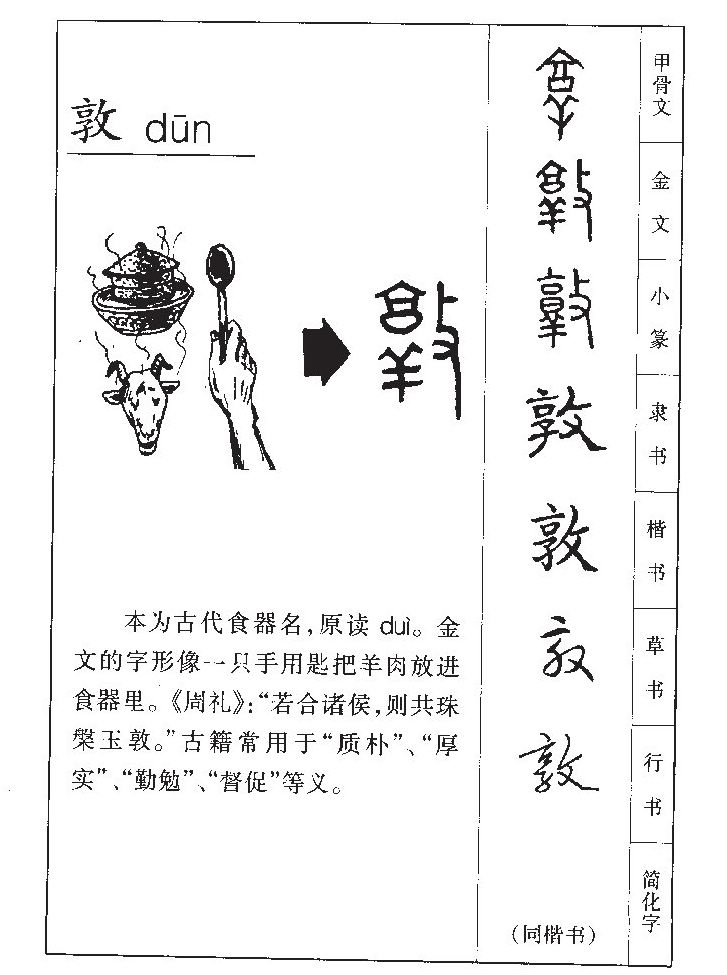 敦 dūn
本为古代食器名,原读 duì。金
文的字形像一只手用匙把羊肉放进
食器里。《周礼》:“若合诸侯,则共珠
槃玉敦。”古籍常用于“质朴”、“厚
实”、“勤勉”、“督促”等义。
甲骨文
金文
小篆
敦
隶书
敦
楷书
草书
敦
行书
(同楷书)
简化字